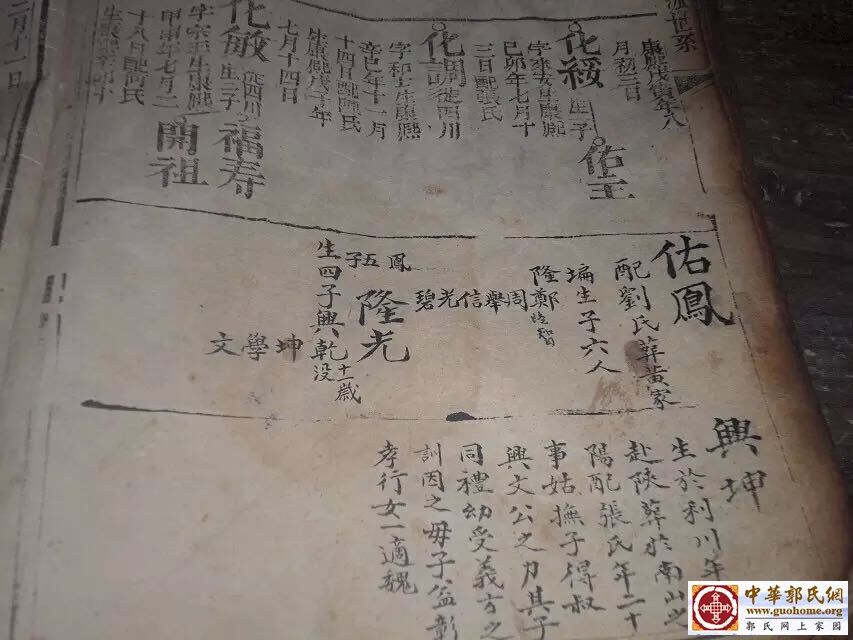 派世系
康熙戊寅年八
月初三日
化綏生一子
佑王
己卯年七月十
三日配張氏
化調徙四川
字和
辛巳年十一月
十四日配陳氏
七月十四日
化敏徙四川生二子
福寿
開祖
甲申年七月二
十八日配何氏
二月十一日
佑鳳
配劉氏葬黄家
塆生子六人
隆鄭隆智周舉信光碧
鳳五子
隆光
生四子興乾十一歲没
坤學文
興坤
生於利川年
赴陝葬於南山之
陽配張氏年二十
事姑撫子得叔
興文公之力其子
同禮幼受義方之
訓因之毋子益彰
孝行女一適魏
中華郭氏網
www.guohome.org
郭氏网上家园